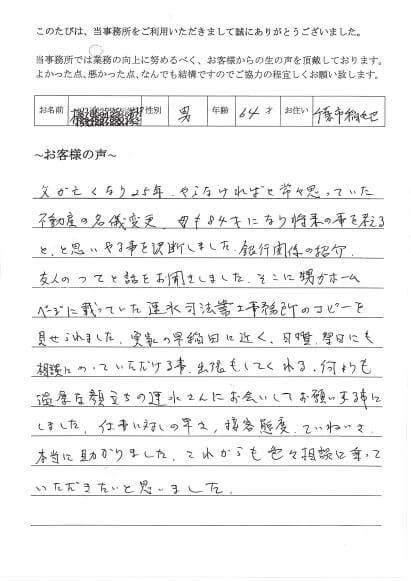 このたびは、当事務所をご利用いただきまして誠にありがとうございました。
当事務所では業務の向上に努めるべく、お客様からの生の声を頂戴しております。
よかった点、悪かった点、なんでも結構ですのでご協力の程宜しくお願い致します。
お名前 性別 男 年齢 64 才 お住い 千葉市稲毛区
~お客様の声~
父が亡くなり25年、やらなければと常々思っていた
不動産の名儀変更、母も84才になり将来の事を考える
と、と思いやる事を決断しました。銀行関係の紹介、
友人のつてと話をお聞きしました。そこに甥がホーム
ページに載っていた速水司法書士事務所のコピーを
見せられました。実家の早稲田に近く、日曜、翌日にも
相談にのっていただける事、出張もしてくれる、何よりも
温厚な顔立ちの速水さんにお会いしてお願いする事に
しました。仕事に対しの早さ、接客態度、ていねいさ、
本当に助かりました。これからも色々相談に乗って
いただきたいと思いました。